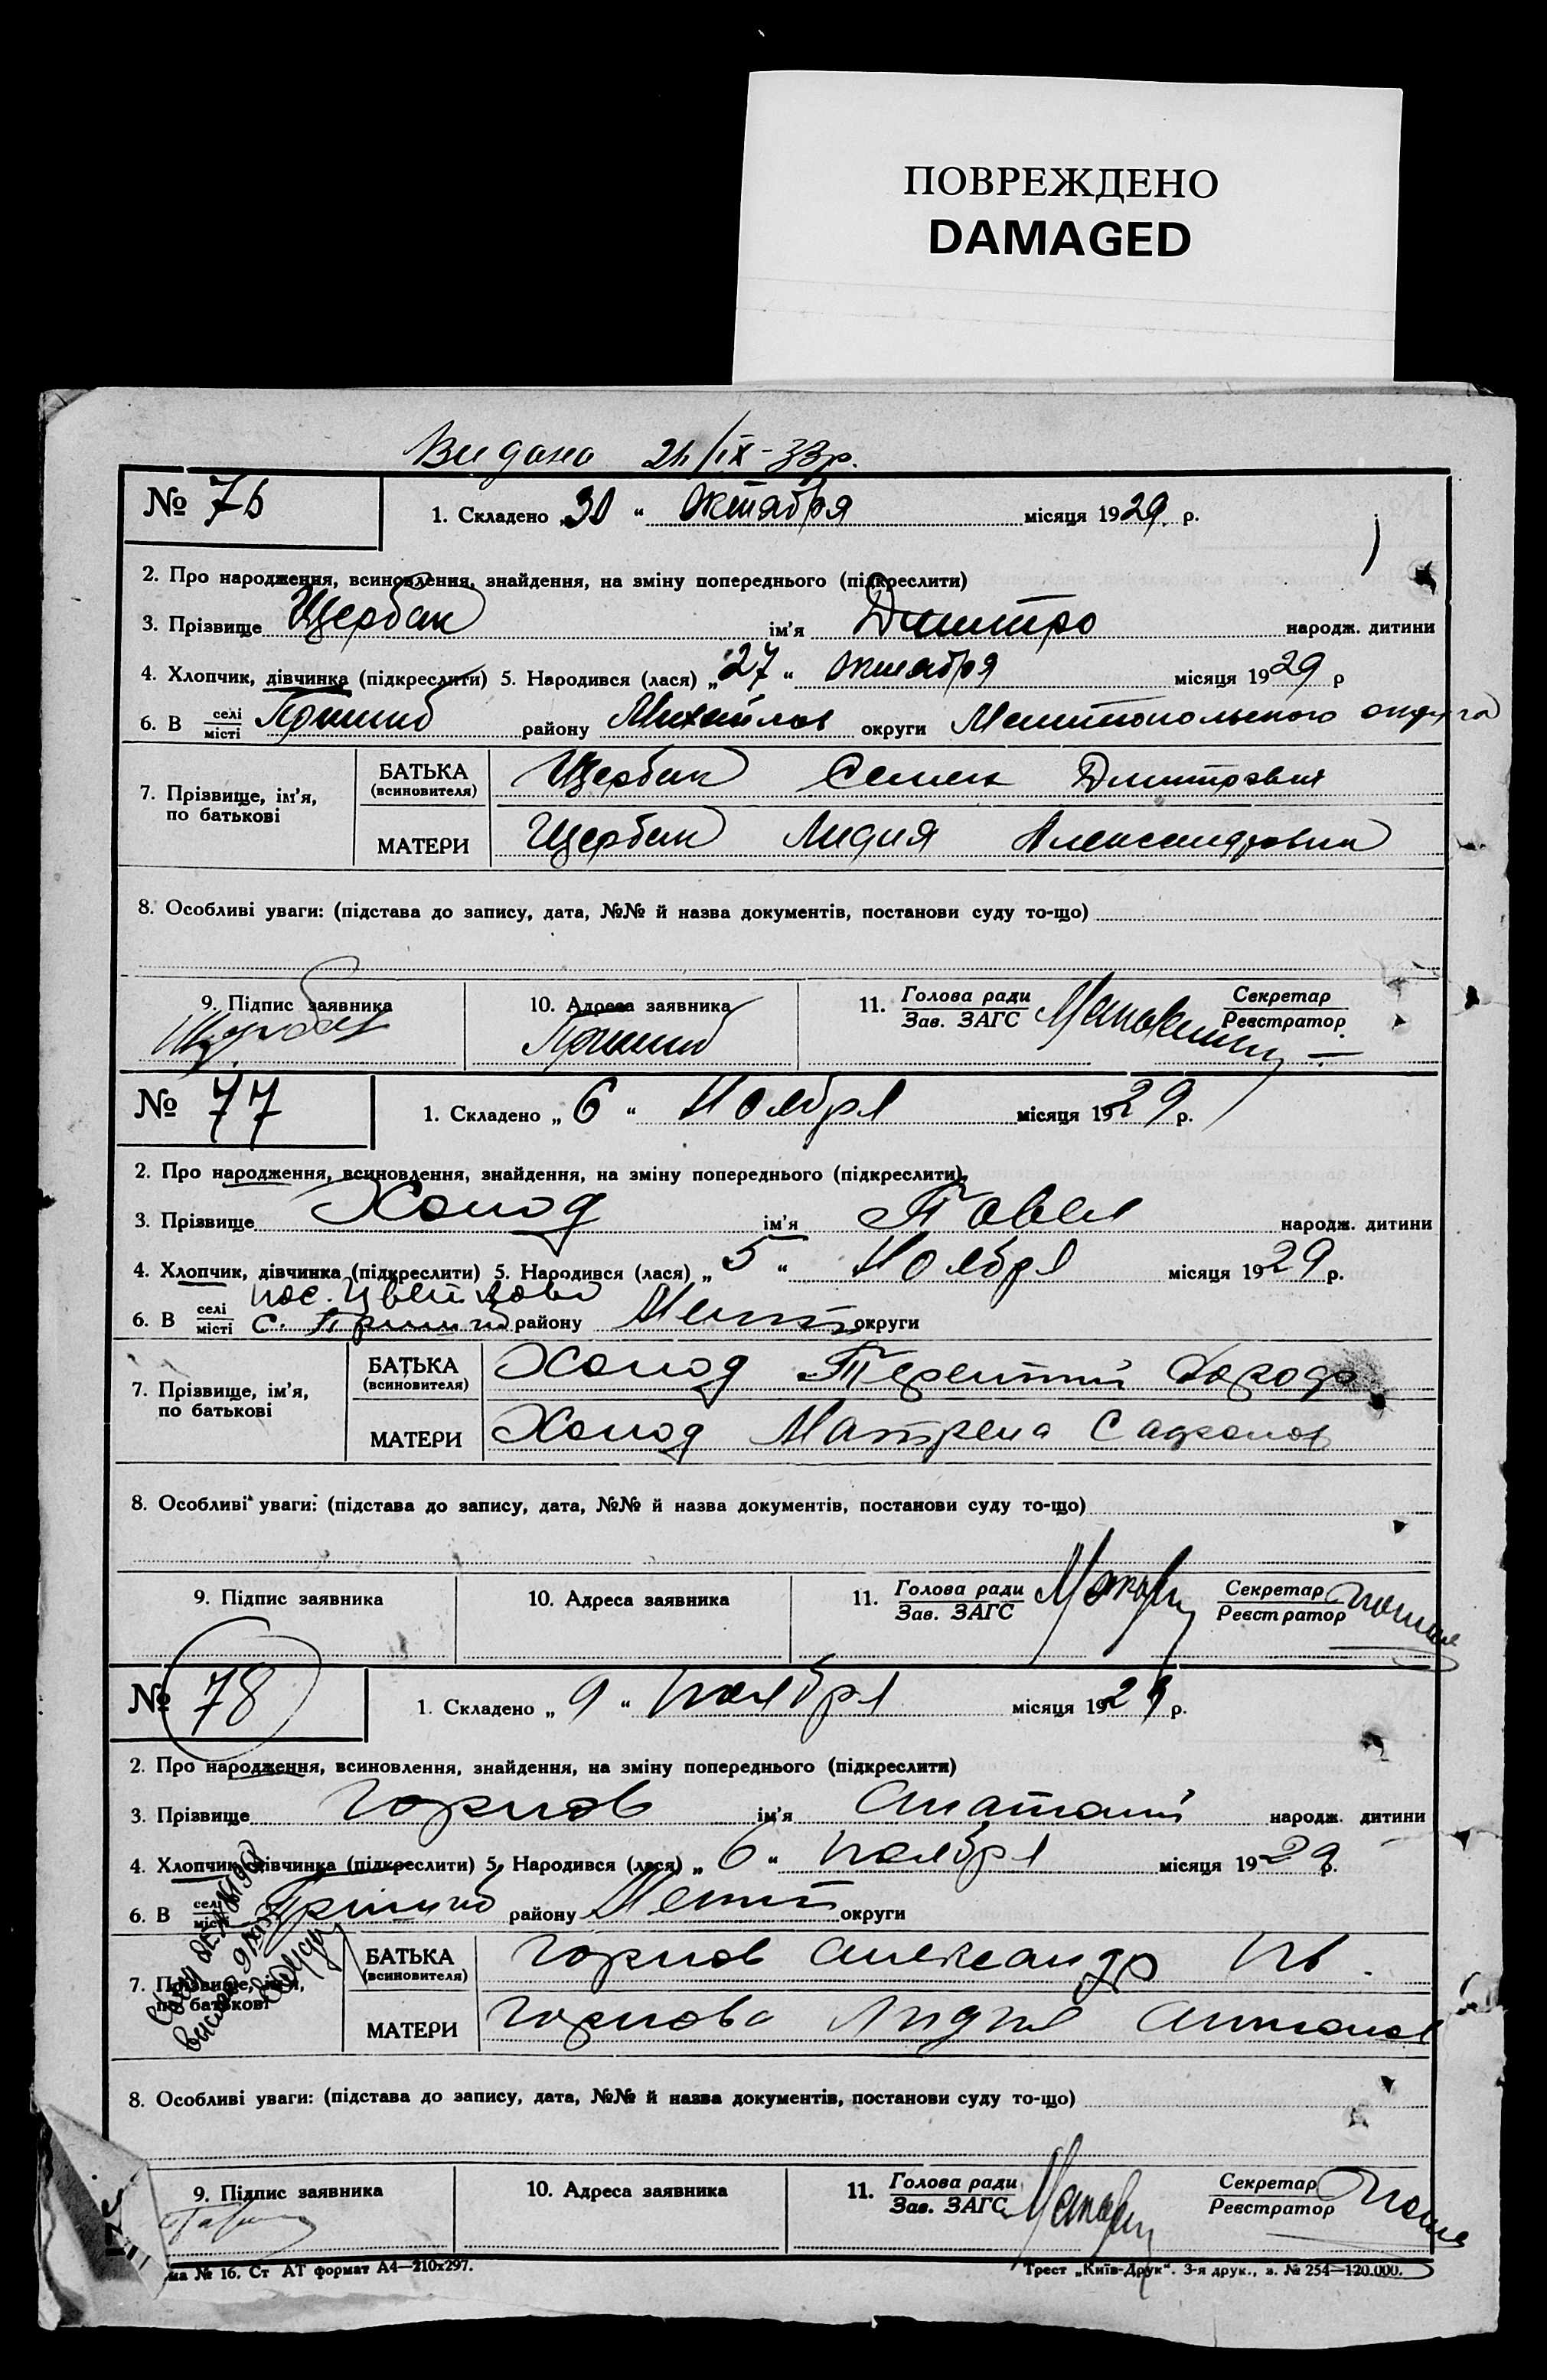 ПОВРЕЖДЕНО
DAMAGED
Видано 21/IX-33р.
№ 76 1. Складено „30“ Октября місяця 1929 р.
2. Про народження, всиновлення, знайдення, на зміну попереднього (підкреслити)
3. Прізвище Щербак ім'я Дмитро народж. дитини
4. Хлопчик, дівчинка (підкреслити) 5. Народився (лася) „27“ Октября місяця 1929 р
6. В селі місті Пришиб району Михайлов округи Мелитопольского округа
7. Прізвище, ім'я, по батькові
БАТЬКА (всиновителя) Щербак Семен Дмитрович
МАТЕРИ Щербак Лидия Александровна
8. Особливі уваги: (підстава до запису, дата, №№ й назва документів, постанови суду то-що)
9. Підпис заявника 10. Адреса заявника 11. Голова ради Зав. ЗАГС Секретар Реєстратор
Щербак Пришиб
№ 77 1. Складено „6“ Ноября місяця 1929 р.
2. Про народження, всиновлення, знайдення, на зміну попереднього (підкреслити)
3. Прізвище Холод ім'я Павел народж. дитини
4. Хлопчик, дівчинка (підкреслити) 5. Народився (лася) „5“ Ноября місяця 1929 р.
пос. Цветково
6. В селі місті с. Пришиб району Мелит округи
7. Прізвище, ім'я, по батькові
БАТЬКА (всиновителя) Холод Терентий
МАТЕРИ Холод Матрена
8. Особливі уваги: (підстава до запису, дата, №№ й назва документів, постанови суду то-що)
9. Підпис заявника 10. Адреса заявника 11. Голова ради Зав. ЗАГС Секретар Реєстратор
№ 78 1. Складено „9“ ноября місяця 1929 р.
2. Про народження, всиновлення, знайдення, на зміну попереднього (підкреслити)
3. Прізвище Горлов ім'я Анатолий народж. дитини
4. Хлопчик, дівчинка (підкреслити) 5. Народився (лася) „6“ ноября місяця 1929 р.
6. В селі місті Пришиб району Мелит округи
7. Прізвище, ім'я, по батькові
БАТЬКА (всиновителя) Горлов Александр Ив.
МАТЕРИ Горлова Лидия Антонов
8. Особливі уваги: (підстава до запису, дата, №№ й назва документів, постанови суду то-що)
9. Підпис заявника 10. Адреса заявника 11. Голова ради Зав. ЗАГС Секретар Реєстратор
ма № 16. Ст АТ формат А4—210х297. Трест „Київ-Друк“. 3-я друк., з. № 254—120.000.